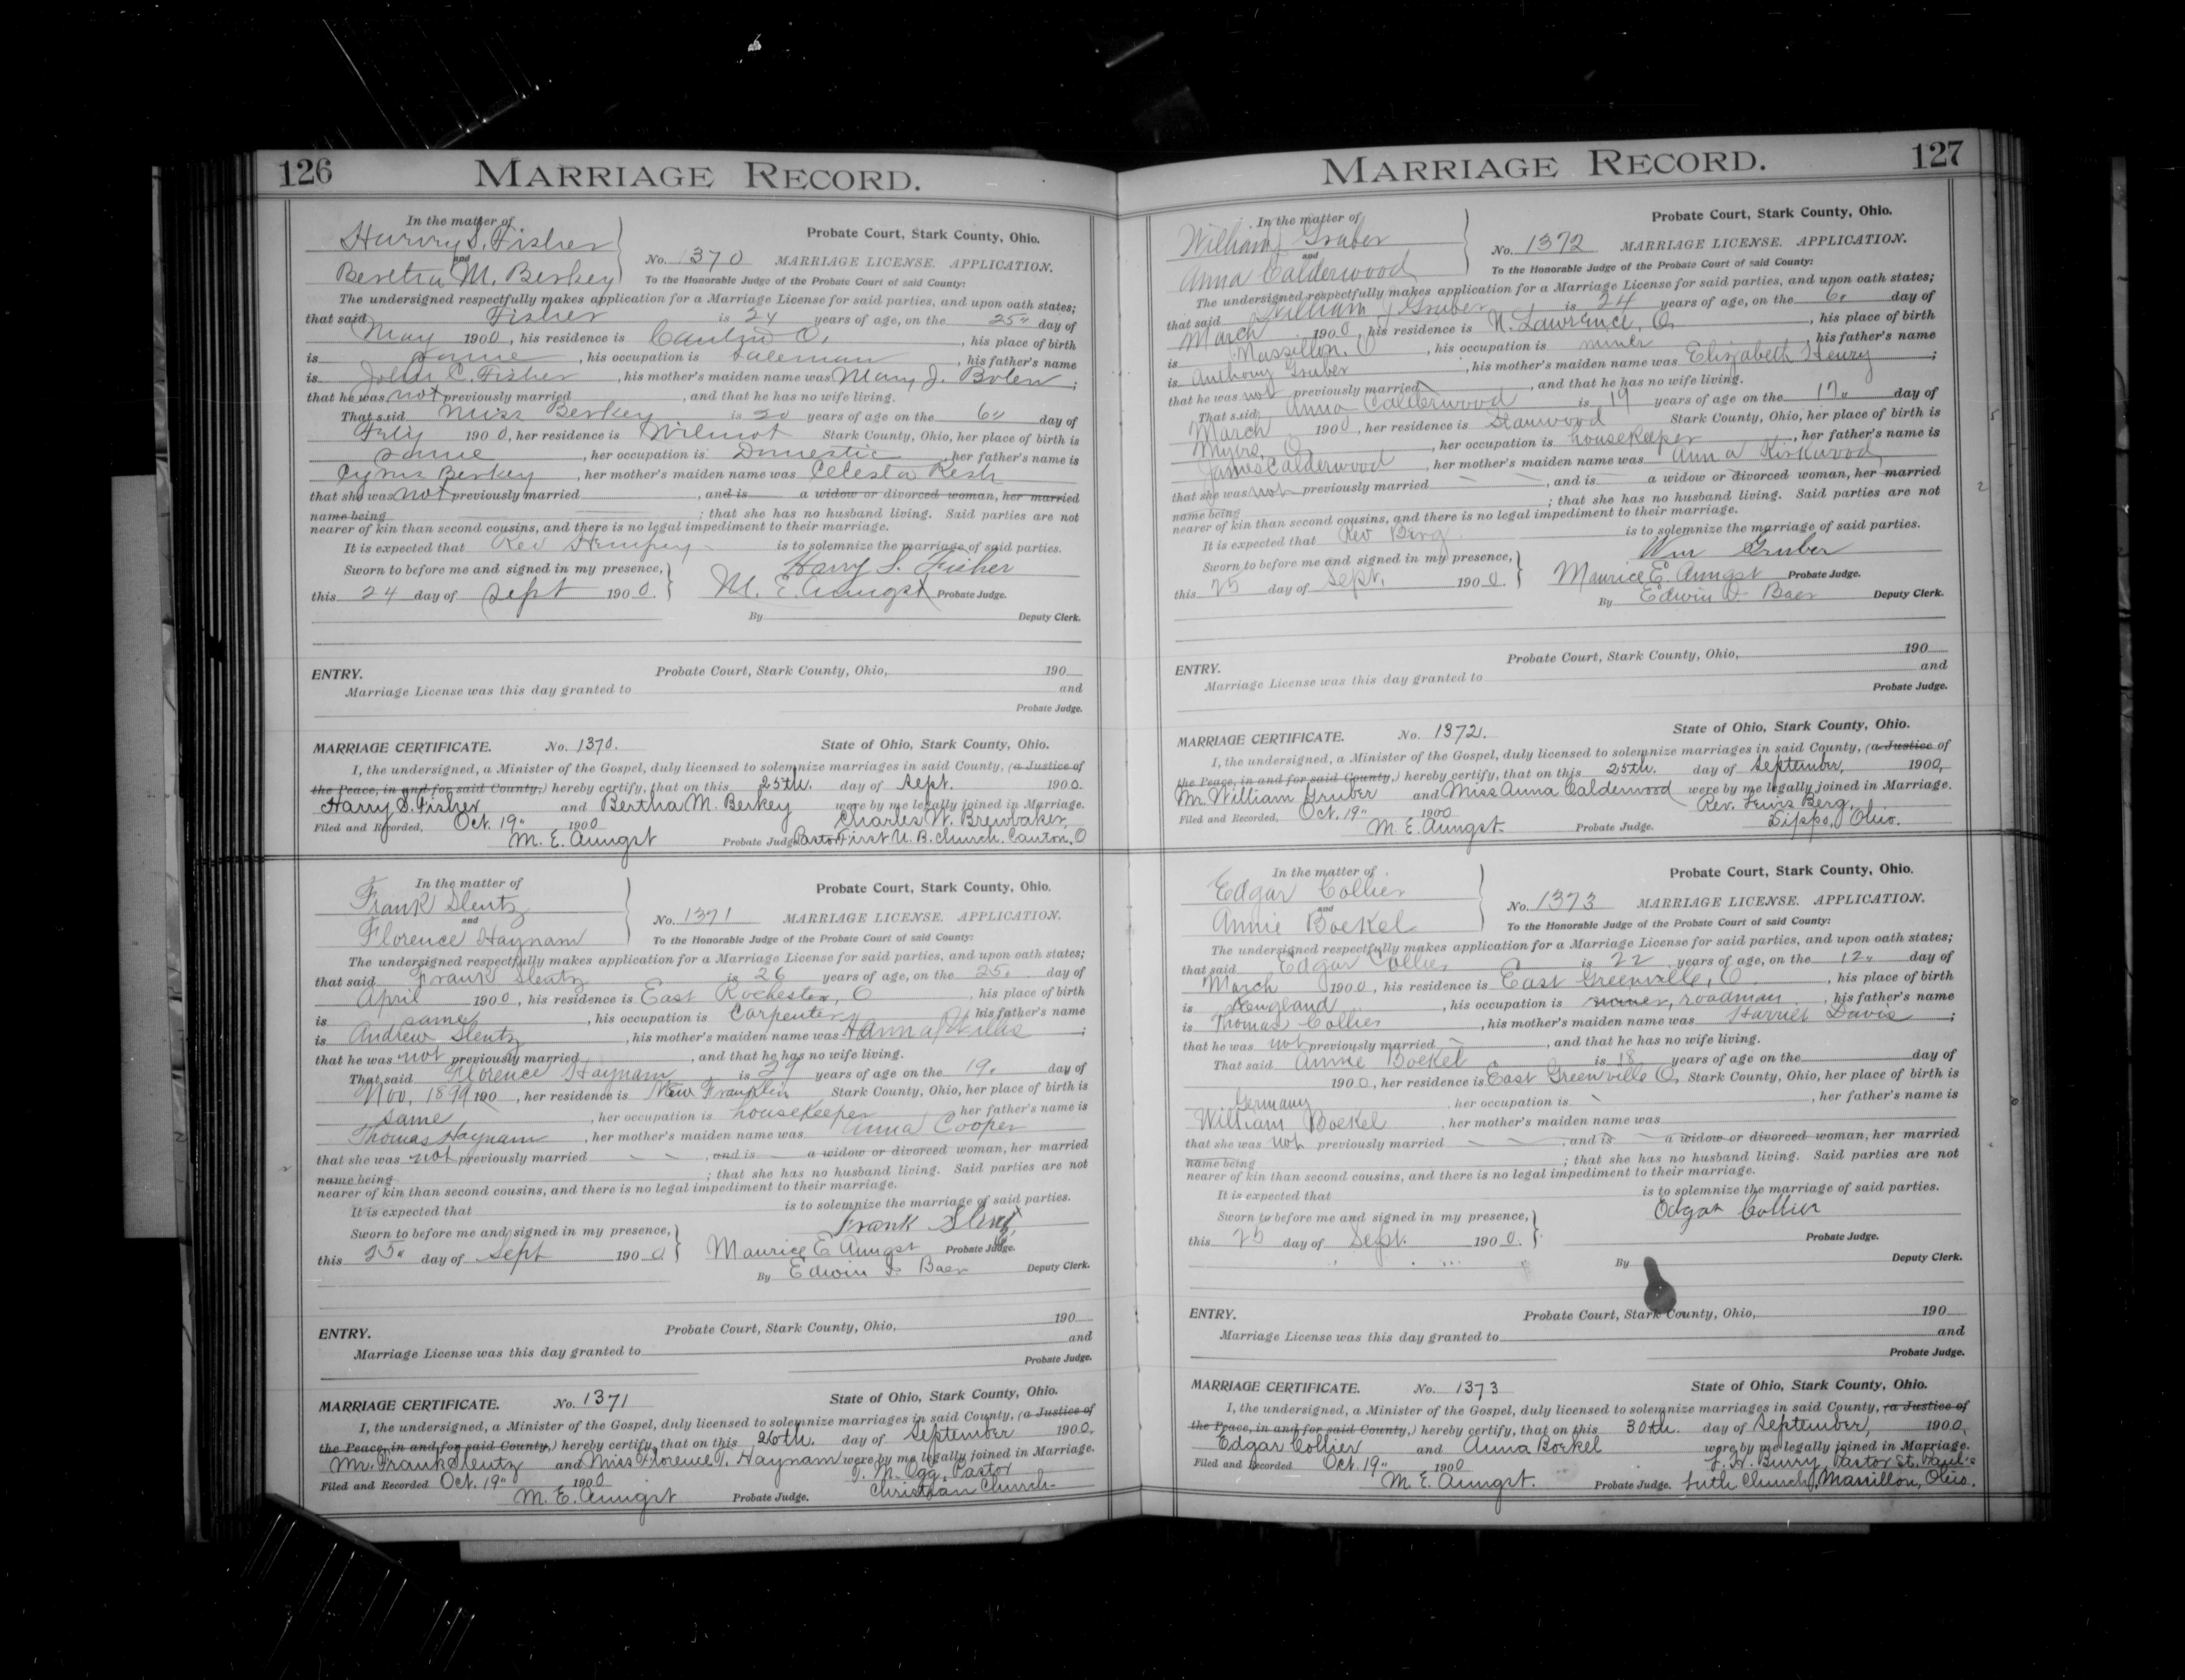 126
MARRIAGE RECORD.
In the matter of
Harvey S. Fisher
and
Bertha M. Berkey
Probate Court, Stark County, Ohio.
No. 1370 MARRIAGE LICENSE. APPLICATION.
To the Honorable Judge of the Probate Court of said County:
The undersigned respectfully makes application for a Marriage License for said parties, and upon oath states;
that said Fisher is 24 years of age, on the 25" day of
May 1900, his residence is Canton O, his place of birth
is same, his occupation is Saleman, his father's name
is C. Fisher, his mother's maiden name was Mary J. Bolen;
that he was not previously married, and that he has no wife living.
That said Miss Berkey is 20 years of age on the 6" day of
July 1900, her residence is Wilmot Stark County, Ohio, her place of birth is
same, her occupation is Domestic, her father's name is
Cyrus Berkey, her mother's maiden name was Celesta Resh
that she was not previously married, and is a widow or divorced woman, her married
name being ; that she has no husband living. Said parties are not
nearer of kin than second cousins, and there is no legal impediment to their marriage.
It is expected that Rev is to solemnize the marriage of said parties.
Harry S. Fisher
Sworn to before me and signed in my presence,
this 24 day of Sept 1900. M. E. Aungst Probate Judge.
By Deputy Clerk.
ENTRY. Probate Court, Stark County, Ohio, 190
Marriage License was this day granted to and
Probate Judge.
MARRIAGE CERTIFICATE. No. 1370. State of Ohio, Stark County, Ohio.
I, the undersigned, a Minister of the Gospel, duly licensed to solemnize marriages in said County, (a Justice of
the Peace, in and for said County,) hereby certify, that on this 25th. day of Sept. 1900.
Harry S. Fisher and Bertha M. Berkey were by me legally joined in Marriage.
Filed and Recorded, Oct. 19" 1900 Charles W. Brewbaker,
M. E. Aungst Probate Judge Pastor First U. B. Church. Canton, O
In the matter of
Frank Slentz
and
Florence Haynam
Probate Court, Stark County, Ohio.
No. 1371 MARRIAGE LICENSE. APPLICATION.
To the Honorable Judge of the Probate Court of said County:
The undersigned respectfully makes application for a Marriage License for said parties, and upon oath states;
that said Frank Slentz is 26 years of age, on the 25" day of
April 1900, his residence is East Rochester, O, his place of birth
is same, his occupation is Carpenter, his father's name
is Andrew Slentz, his mother's maiden name was Hanna;
that he was not previously married, and that he has no wife living.
That said Florence Haynam is 29 years of age on the 19" day of
Nov, 1899 190, her residence is New Franklin Stark County, Ohio, her place of birth is
same, her occupation is housekeeper, her father's name is
Thomas Haynam, her mother's maiden name was Anna Cooper
that she was not previously married, and is a widow or divorced woman, her married
name being ; that she has no husband living. Said parties are not
nearer of kin than second cousins, and there is no legal impediment to their marriage.
It is expected that is to solemnize the marriage of said parties.
Frank Slentz
Sworn to before me and signed in my presence,
this 25" day of Sept 1900 Maurice E. Aungst Probate Judge.
By Edwin D. Baer Deputy Clerk.
ENTRY. Probate Court, Stark County, Ohio, 190
Marriage License was this day granted to and
Probate Judge.
MARRIAGE CERTIFICATE. No. 1371 State of Ohio, Stark County, Ohio.
I, the undersigned, a Minister of the Gospel, duly licensed to solemnize marriages in said County, (a Justice of
the Peace, in and for said County,) hereby certify, that on this 26th. day of September 1900,
Mr. Frank Slentz and Miss Florence T. Haynam were by me legally joined in Marriage.
Filed and Recorded Oct. 19" 1900 T. M. Ogg, Pastor
M. E. Aungst Probate Judge. Christian Church-
127
MARRIAGE RECORD.
In the matter of
William J Gruber
and
Anna Calderwood
Probate Court, Stark County, Ohio.
No. 1372 MARRIAGE LICENSE. APPLICATION.
To the Honorable Judge of the Probate Court of said County:
The undersigned respectfully makes application for a Marriage License for said parties, and upon oath states;
that said William J Gruber is 24 years of age, on the 6" day of
March 1900, his residence is N. Lawrence, O, his place of birth
is Massillon, O, his occupation is miner, his father's name
is Anthony Gruber, his mother's maiden name was Elizabeth Henry;
that he was not previously married, and that he has no wife living.
That said Anna Calderwood is 19 years of age on the 17" day of
March 1900, her residence is Stanwood Stark County, Ohio, her place of birth is
Myers, O, her occupation is housekeeper, her father's name is
James Calderwood, her mother's maiden name was Anna Kirkwood,
that she was not previously married, and is a widow or divorced woman, her married
name being ; that she has no husband living. Said parties are not
nearer of kin than second cousins, and there is no legal impediment to their marriage.
It is expected that Rev Berg is to solemnize the marriage of said parties.
Wm Gruber
Sworn to before me and signed in my presence,
this 25 day of Sept. 1900. Maurice E. Aungst Probate Judge.
By Edwin D. Baer Deputy Clerk.
ENTRY. Probate Court, Stark County, Ohio, 190
Marriage License was this day granted to and
Probate Judge.
MARRIAGE CERTIFICATE. No. 1372. State of Ohio, Stark County, Ohio.
I, the undersigned, a Minister of the Gospel, duly licensed to solemnize marriages in said County, (a Justice of
the Peace, in and for said County,) hereby certify, that on this 25th. day of September, 1900,
Mr. William Gruber and Miss Anna Calderwood were by me legally joined in Marriage.
Filed and Recorded, Oct. 19" 1900 Rev. Lewis Berg,
M. E. Aungst. Probate Judge. Sippo, Ohio.
In the matter of
Edgar Collier
and
Annie Boekel
Probate Court, Stark County, Ohio.
No. 1373 MARRIAGE LICENSE. APPLICATION.
To the Honorable Judge of the Probate Court of said County:
The undersigned respectfully makes application for a Marriage License for said parties, and upon oath states;
that said Edgar Collier is 22 years of age, on the 12" day of
March 1900, his residence is East Greenville, O, his place of birth
is England, his occupation is miner, roadman, his father's name
is Thomas Collier, his mother's maiden name was Harriet Davis;
that he was not previously married, and that he has no wife living.
That said Annie Boekel is 18 years of age on the day of
1900, her residence is East Greenville O, Stark County, Ohio, her place of birth is
Germany, her occupation is , her father's name is
William Boekel, her mother's maiden name was
that she was not previously married, and is a widow or divorced woman, her married
name being ; that she has no husband living. Said parties are not
nearer of kin than second cousins, and there is no legal impediment to their marriage.
It is expected that is to solemnize the marriage of said parties.
Edgar Collier
Sworn to before me and signed in my presence,
this 25 day of Sept. 1900. Probate Judge.
By Deputy Clerk.
ENTRY. Probate Court, Stark County, Ohio, 190
Marriage License was this day granted to and
Probate Judge.
MARRIAGE CERTIFICATE. No. 1373 State of Ohio, Stark County, Ohio.
I, the undersigned, a Minister of the Gospel, duly licensed to solemnize marriages in said County, (a Justice of
the Peace, in and for said County,) hereby certify, that on this 30th. day of September, 1900,
Edgar Collier and Anna Borkel were by me legally joined in Marriage.
Filed and Recorded Oct. 19" 1900 L. H. Burry, Pastor St. Paul's
M. E. Aungst. Probate Judge. Luth Church, Massillon, Ohio.